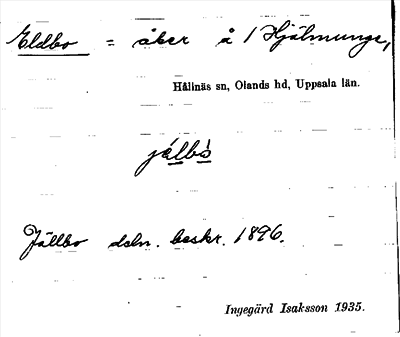 Eldbo = åker å /Hjälmunge,
Hållnäs sn, Olands hd, Uppsala län.
jälbò
Jällbo dsln. beskr. 1896.
Ingegärd Isaksson 1935.